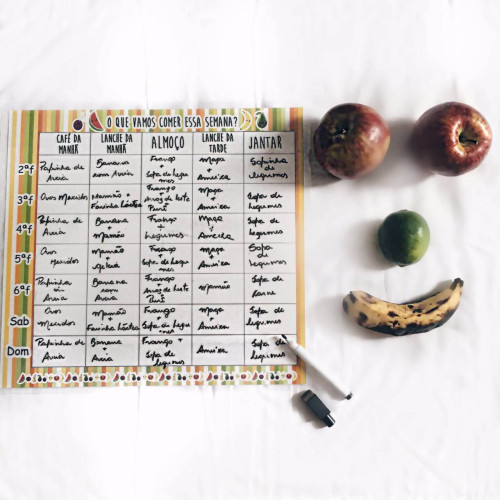 O QUE VAMOS COMER ESSA SEMANA?
CAFÉ DA MANHÃ
LANCHE DA MANHÃ
ALMOÇO
LANCHE DA TARDE
JANTAR
2ªf
Papinha de
Aveia
Banana
com Aveia
Frango
+
Sopa de legu
mes
Maçã
+
Ameixa
Sopinha
de
legumes
3ªf
Ovos Mexidos
Mamão +
Farinha láctea
Frango
+
Purê
Maçã
+
Ameixa
Sopa de
legumes
4ªf
Papinha de
Aveia
Banana
+
Mamão
Frango
+
Legumes
Maçã
+
Ameixa
Sopa de
legumes
5ªf
Ovos
Mexidos
Mamão
+
Frango
+
Sopa de legu
mes
Maçã
+
Ameixa
Sopa
de
legumes
6ªf
Papinha
Aveia
Banana
com
Aveia
Frango
+
Purê
Mamão
Sopa de
Carne
Sab
Ovos
Mexidos
Mamão
+
Farinha láctea
Frango
+
Sopa de legu
mes
Maçã
+
Ameixa
Sopa de
legumes
Dom
Papinha de
Aveia
Banana
+
Aveia
Frango +
Sopa de
legumes
Ameixa
Sopa de
legumes